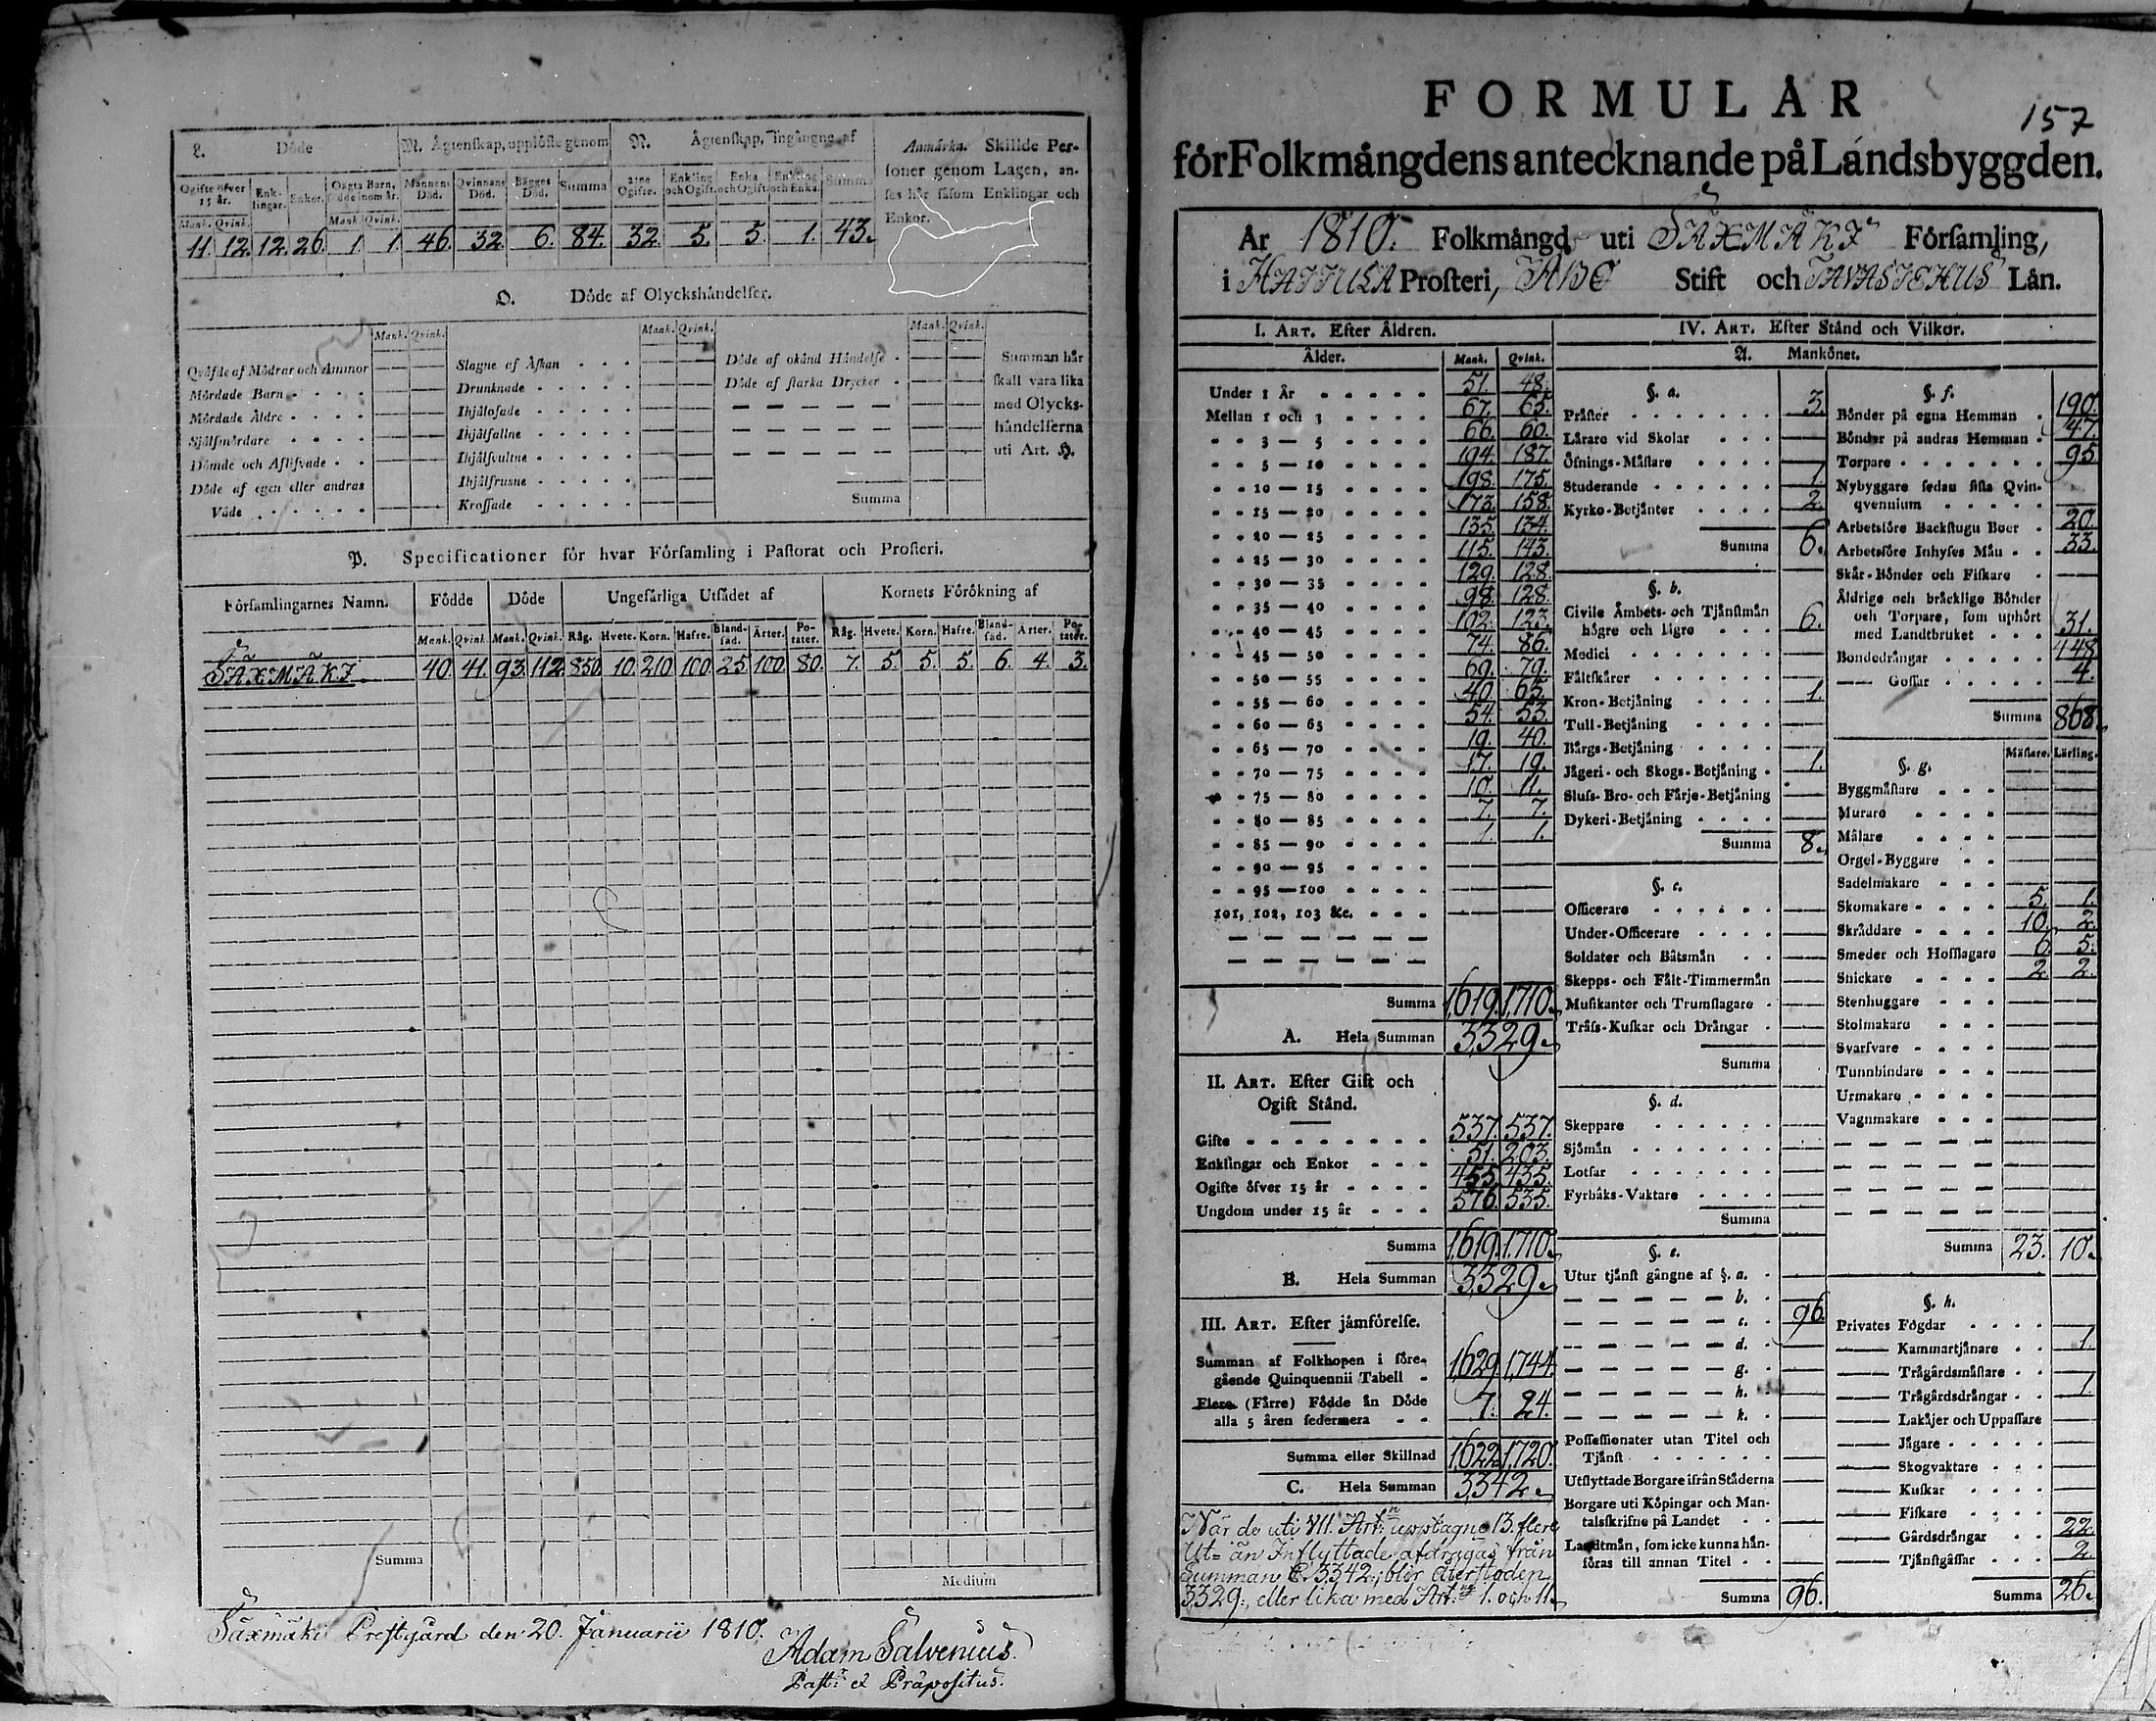 L. Döde
M. Ägtenskap, upplöste genom
N. Ägtenskap, ingångne af
Ogifte öfver 15 år. Enklingar. Enkor. Oägta Barn, födde inom år. Mannens Död. Qvinnans Död. Bägges Död. Summa 2:ne Ogifte. Enkling och Ogift. Enka och Ogift. Enkling och Enka. Summa
Mank. Qvink. Mank. Qvink.
11. 12. 12. 26. 1. 1. 46. 32. 6. 84. 32. 5. 5. 1. 43.
Anmärkn. Skillde Personer genom Lagen, anses här såsom Enklingar och Enkor.
O. Döde af Olyckshändelser.
Mank. Qvink. Mank. Qvink. Mank. Qvink.
Qväfde af Mödrar och Ammor
Mördade Barn
Mördade Äldre
Sjelfmördare
Dömde och Aflifvade
Döde af egen eller andras Våde
Slagne af Åskan
Drunknade
Ihjälosade
Ihjälfallne
Ihjälsvultne
Ihjälfrusne
Krossade
Döde af okänd Händelse
Döde af starka Drycker
Summa
Summan här skall vara lika med Olyckshändelserna uti Art. H.
P. Specificationer för hvar Församling i Pastorat och Prosteri.
Församlingarnes Namn. Födde Döde Ungefärliga Utsädet af Kornets Förökning af
Mank. Qvink. Mank. Qvink. Råg. Hvete. Korn. Hafre. Blandsäd. Ärter. Potater. Råg. Hvete. Korn. Hafre. Blandsäd. Ärter. Potater.
SÄXMÄKI 40. 41. 93. 112. 850. 10. 210. 100. 25. 100. 80. 7. 5. 5. 5. 6. 4. 3.
Summa
Medium
Säxmäki Prestgård den 20. Januarii 1810.
Adam Salvenius.
Past: et Præpositus.
157
FORMULÄR
för Folkmängdens antecknande på Landsbyggden.
År 1810. Folkmängd uti SÄXMÄKI Församling,
i HATTULA Prosteri, ÅBO Stift och TAVASTEHUS Län.
I. ART. Efter Åldren.
Ålder. Mank. Qvink.
Under 1 År 51. 48.
Mellan 1 och 3 67. 65.
3 — 5 66. 60.
5 — 10 194. 187.
10 — 15 198. 175.
15 — 20 173. 158.
20 — 25 135. 134.
25 — 30 115. 143.
30 — 35 129. 128.
35 — 40 98. 128.
40 — 45 102. 123.
45 — 50 74. 86.
50 — 55 69. 79.
55 — 60 40. 65.
60 — 65 54. 53.
65 — 70 19. 40.
70 — 75 17. 19.
75 — 80 10. 11.
80 — 85 7. 7.
85 — 90 1. 1.
90 — 95
95 — 100
101, 102, 103 &c.
Summa 1,619. 1,710.
A. Hela Summan 3,329.
II. ART. Efter Gift och Ogift Stånd.
Gifte 537. 537.
Enklingar och Enkor 51. 203.
Ogifte öfver 15 år 455. 435.
Ungdom under 15 år 576. 535.
Summa 1,619. 1,710.
B. Hela Summan 3,329.
III. ART. Efter jämförelse.
Summan af Folkhopen i föregående Quinquennii Tabell 1,629. 1,744.
Flere (Färre) Födde än Döde alla 5 åren sedermera 7. 24.
Summa eller Skillnad 1,622. 1,720.
C. Hela Summan 3,342.
När de uti VII. Art:n upptagne 13. flere
Ut- än Inflyttade afdragas från
Summan C. 3342; blir återstoden
3,329., eller lika med Art: I. och II.
IV. ART. Efter Stånd och Vilkor.
A. Mankönet.
§. a.
Präster 3.
Lärare vid Skolar
Öfnings-Mästare
Studerande 1.
Kyrko-Betjänter 2.
Summa 6.
§. b.
Civile Ämbets- och Tjänstmän högre och lägre 6.
Medici
Fältskärer
Kron-Betjäning 1.
Tull-Betjäning
Bärgs-Betjäning
Jägeri- och Skogs-Betjäning 1.
Sluss- Bro- och Färje-Betjäning
Dykeri-Betjäning
Summa 8.
§. c.
Officerare
Under-Officerare
Soldater och Båtsmän
Skepps- och Fält-Timmermän
Musikanter och Trumslagare
Träss-Kuskar och Drängar
Summa
§. d.
Skeppare
Sjömän
Lotsar
Fyrbåks-Vaktare
Summa
§. e.
Utur tjänst gångne af §. a.
b.
c. 96.
d.
g.
h.
k.
Possessionater utan Titel och Tjänst
Utflyttade Borgare ifrån Städerna
Borgare uti Köpingar och Mantalsskrifne på Landet
Landtmän, som icke kunna hänföras till annan Titel
Summa 96.
§. f.
Bönder på egna Hemman 190.
Bönder på andras Hemman 47.
Torpare 95.
Nybyggare sedan sista Qvinqvennium
Arbetsföre Backstugu Boer 20.
Arbetsföre Inhyses Män 33.
Skär-Bönder och Fiskare
Åldrige och bräcklige Bönder och Torpare, som uphört med Landtbruket 31.
Bondedrängar 448.
— Gossar 4.
Summa 868.
§. g. Mästare. Lärling.
Byggmästare
Murare
Målare
Orgel-Byggare
Sadelmakare
Skomakare 5. 1.
Skräddare 10. 2.
Smeder och Hofslagare 6. 5.
Snickare 2. 2.
Stenhuggare
Stolmakare
Svarfvare
Tunnbindare
Urmakare
Vagnmakare
Summa 23. 10.
§. h.
Privates Fogdar
— Kammartjänare 1.
— Trägårdsmästare
— Trägårdsdrängar 1.
— Lakäjer och Uppassare
— Jägare
— Skogvaktare
— Kuskar
— Fiskare
— Gårdsdrängar 22.
— Tjänstgåssar 2.
Summa 26.